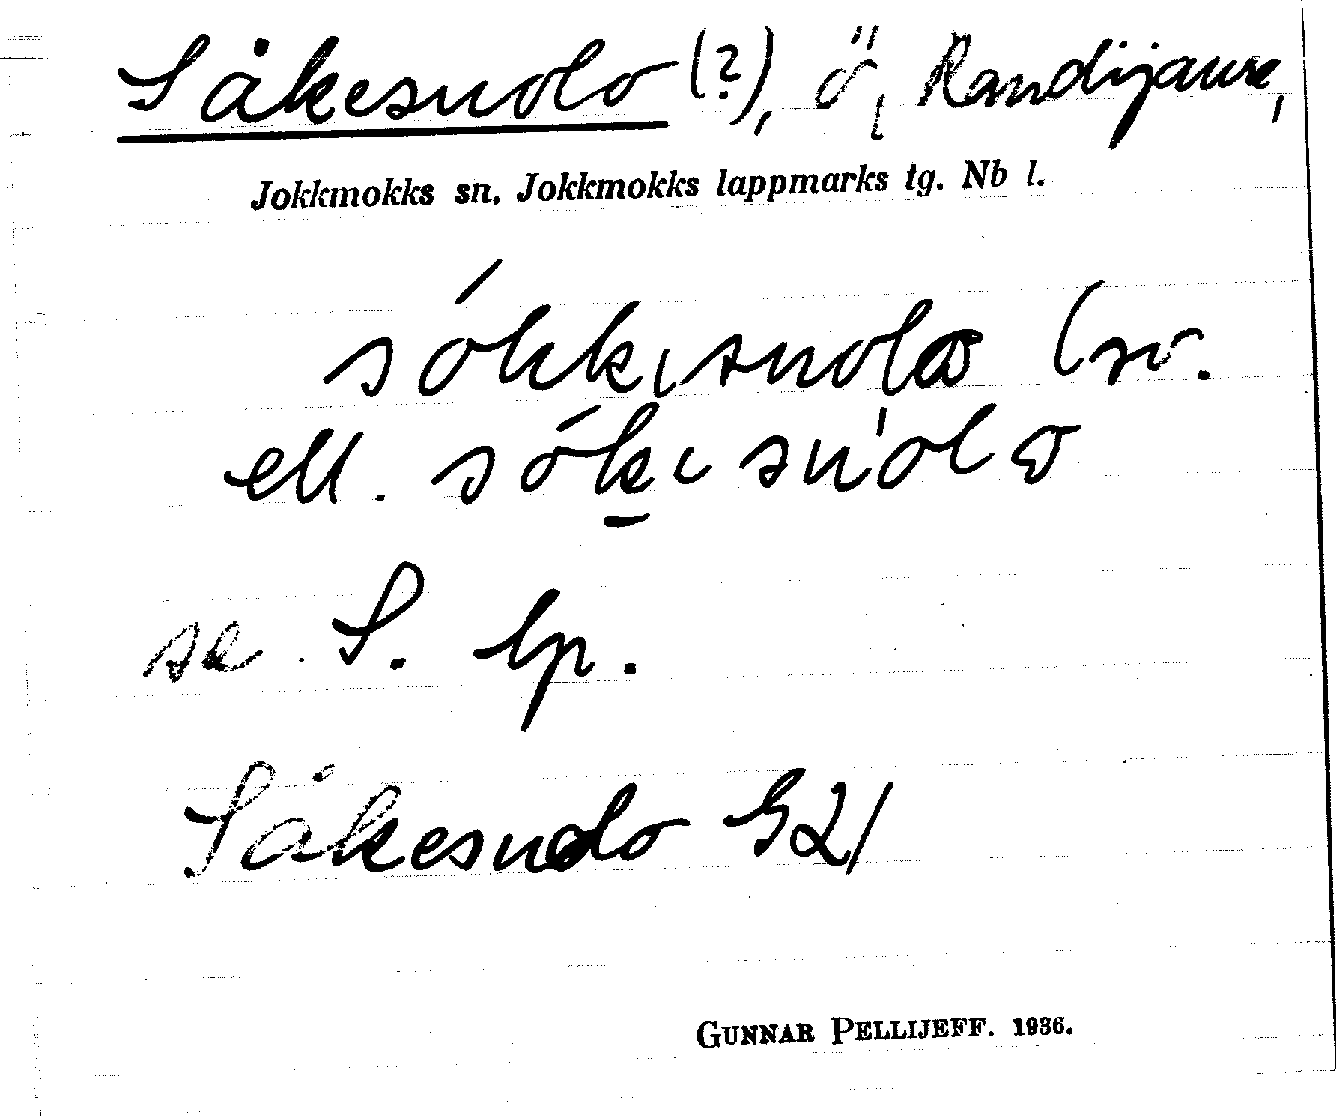 Såkesuolo (?), ö, Randijaure,
Jokkmokks sn. Jokkmokks lappmarks tg. Nb l.
sókkısuolo (sv.
ell. sókısuolo
se S. lp.
Såkesuolo G21
GUNNAR PELLIJEFF. 1936.